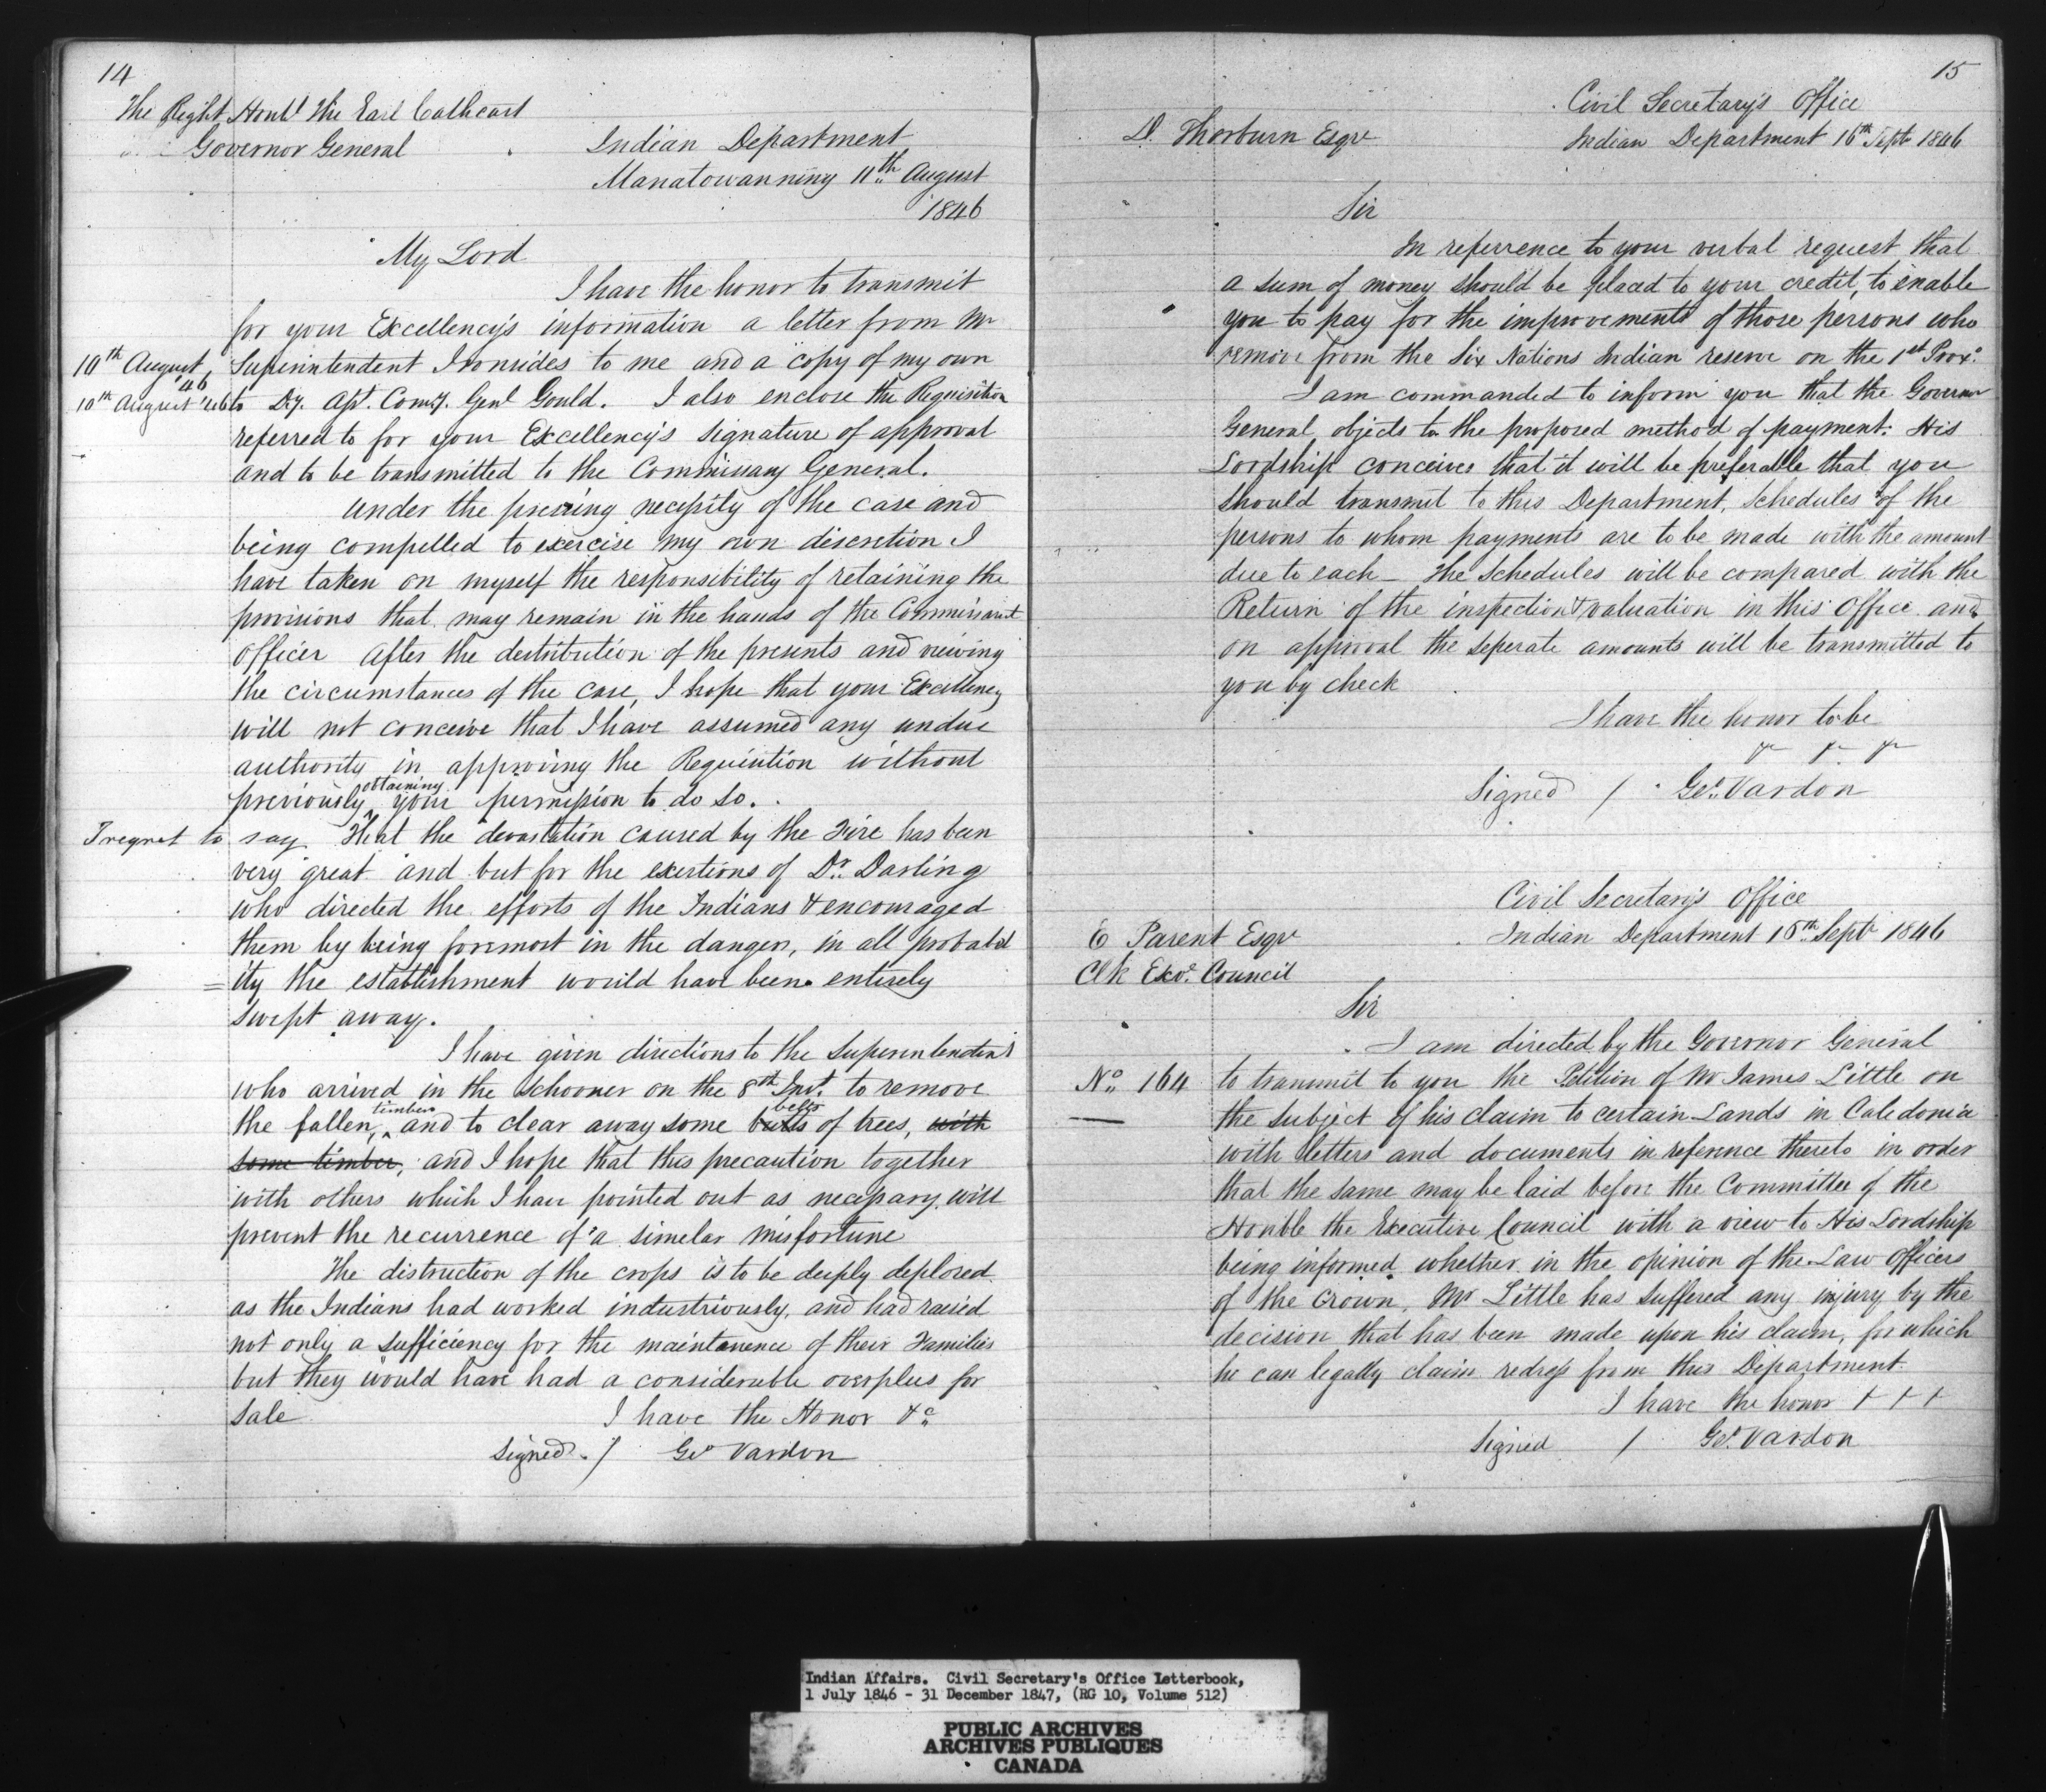 14
The Right Honbl the Earl Cathcart
Governor General
Indian Department
Manatowanning 11th August
1846
My Lord
I have the honor to transmit
for your Excellency's information a letter from Mr
10th August '46 Superintendent Ironsides to me and a copy of my own
10th August '46 to Dy. Asst. Comy. Genl Gould. I also enclose the Requisition
referred to for your Excellency's signature of approval
and to be transmitted to the Commissary General.
Under the pressing necessity of the case and
being compelled to exercise my own discretion I
have taken on myself the responsibility of retaining the
provisions that may remain in the hands of the Commissariat
Officer after the destribution of the presents and viewing
the circumstances of the case, I hope that your Excellency
will not conceive that I have assumed any undue
authority in approving the Requisition without
previously obtaining your permission to do so.
I regret to say that the devastation caused by the Fire has been
very great and but for the exertions of Dr. Darling
who directed the efforts of the Indians & encouraged
them by being foremost in the danger, in all probabil
=ity the establishment would have been entirely
swept away.
I have given directions to the Superintendent
who arrived in the Schooner on the 8th Inst. to remove
the fallen timber, and to clear away some butts belts of trees, with
some timber, and I hope that this precaution together
with others which I have pointed out as necessary will
prevent the recurrence of a simelar misfortune
The distruction of the crops is to be deeply deplored
as the Indians had worked industriously, and had raised
not only a sufficiency for the maintanence of their Families
but they would have had a considerable overplus for
Sale I have the Honor &c
Signed / Geo Vardon
15
Civil Secretary's Office
D. Thorburn Esqre Indian Department 16th Sept 1846
Sir
In referrence to your verbal request that
a sum of money should be placed to your credit, to enable
you to pay for the improvements of those persons who
remove from the Six Nations Indian reserve on the 1st Prox.
I am commanded to inform you that the Governor
General objects to the proposed method of payment. His
Lordship conceives that it will be preferable that you
should transmit to this Department, Schedules of the
persons to whom payments are to be made with the amount
due to each - The Schedules will be compared with the
Return of the inspection & valuation in this Office and
on approval the seperate amounts will be transmitted to
you by check
I have the honor to be
&c &c &c
Signed / Geo. Vardon
Civil Secretary's Office
E Parent Esqr Indian Department 16th Sept 1846
Clk Exve. Council
Sir
I am directed by the Governor General
No. 164 to transmit to you the Petition of Mr James Little on
the subject of his claim to certain Lands in Caledonia
with letters and documents in reference thereto in order
that the same may be laid before the Committee of the
Honble the Executive Council with a view to His Lordship
being informed whether in the opinion of the Law Officers
of the Crown, Mr Little has suffered any injury by the
decision that has been made upon his claim, for which
he can legally claim redress from this Department.
I have the honor + + +
Signed / Geo. Vardon
Indian Affairs. Civil Secretary's Office Letterbook,
1 July 1846 - 31 December 1847, (RG 10, Volume 512)
PUBLIC ARCHIVES
ARCHIVES PUBLIQUES
CANADA